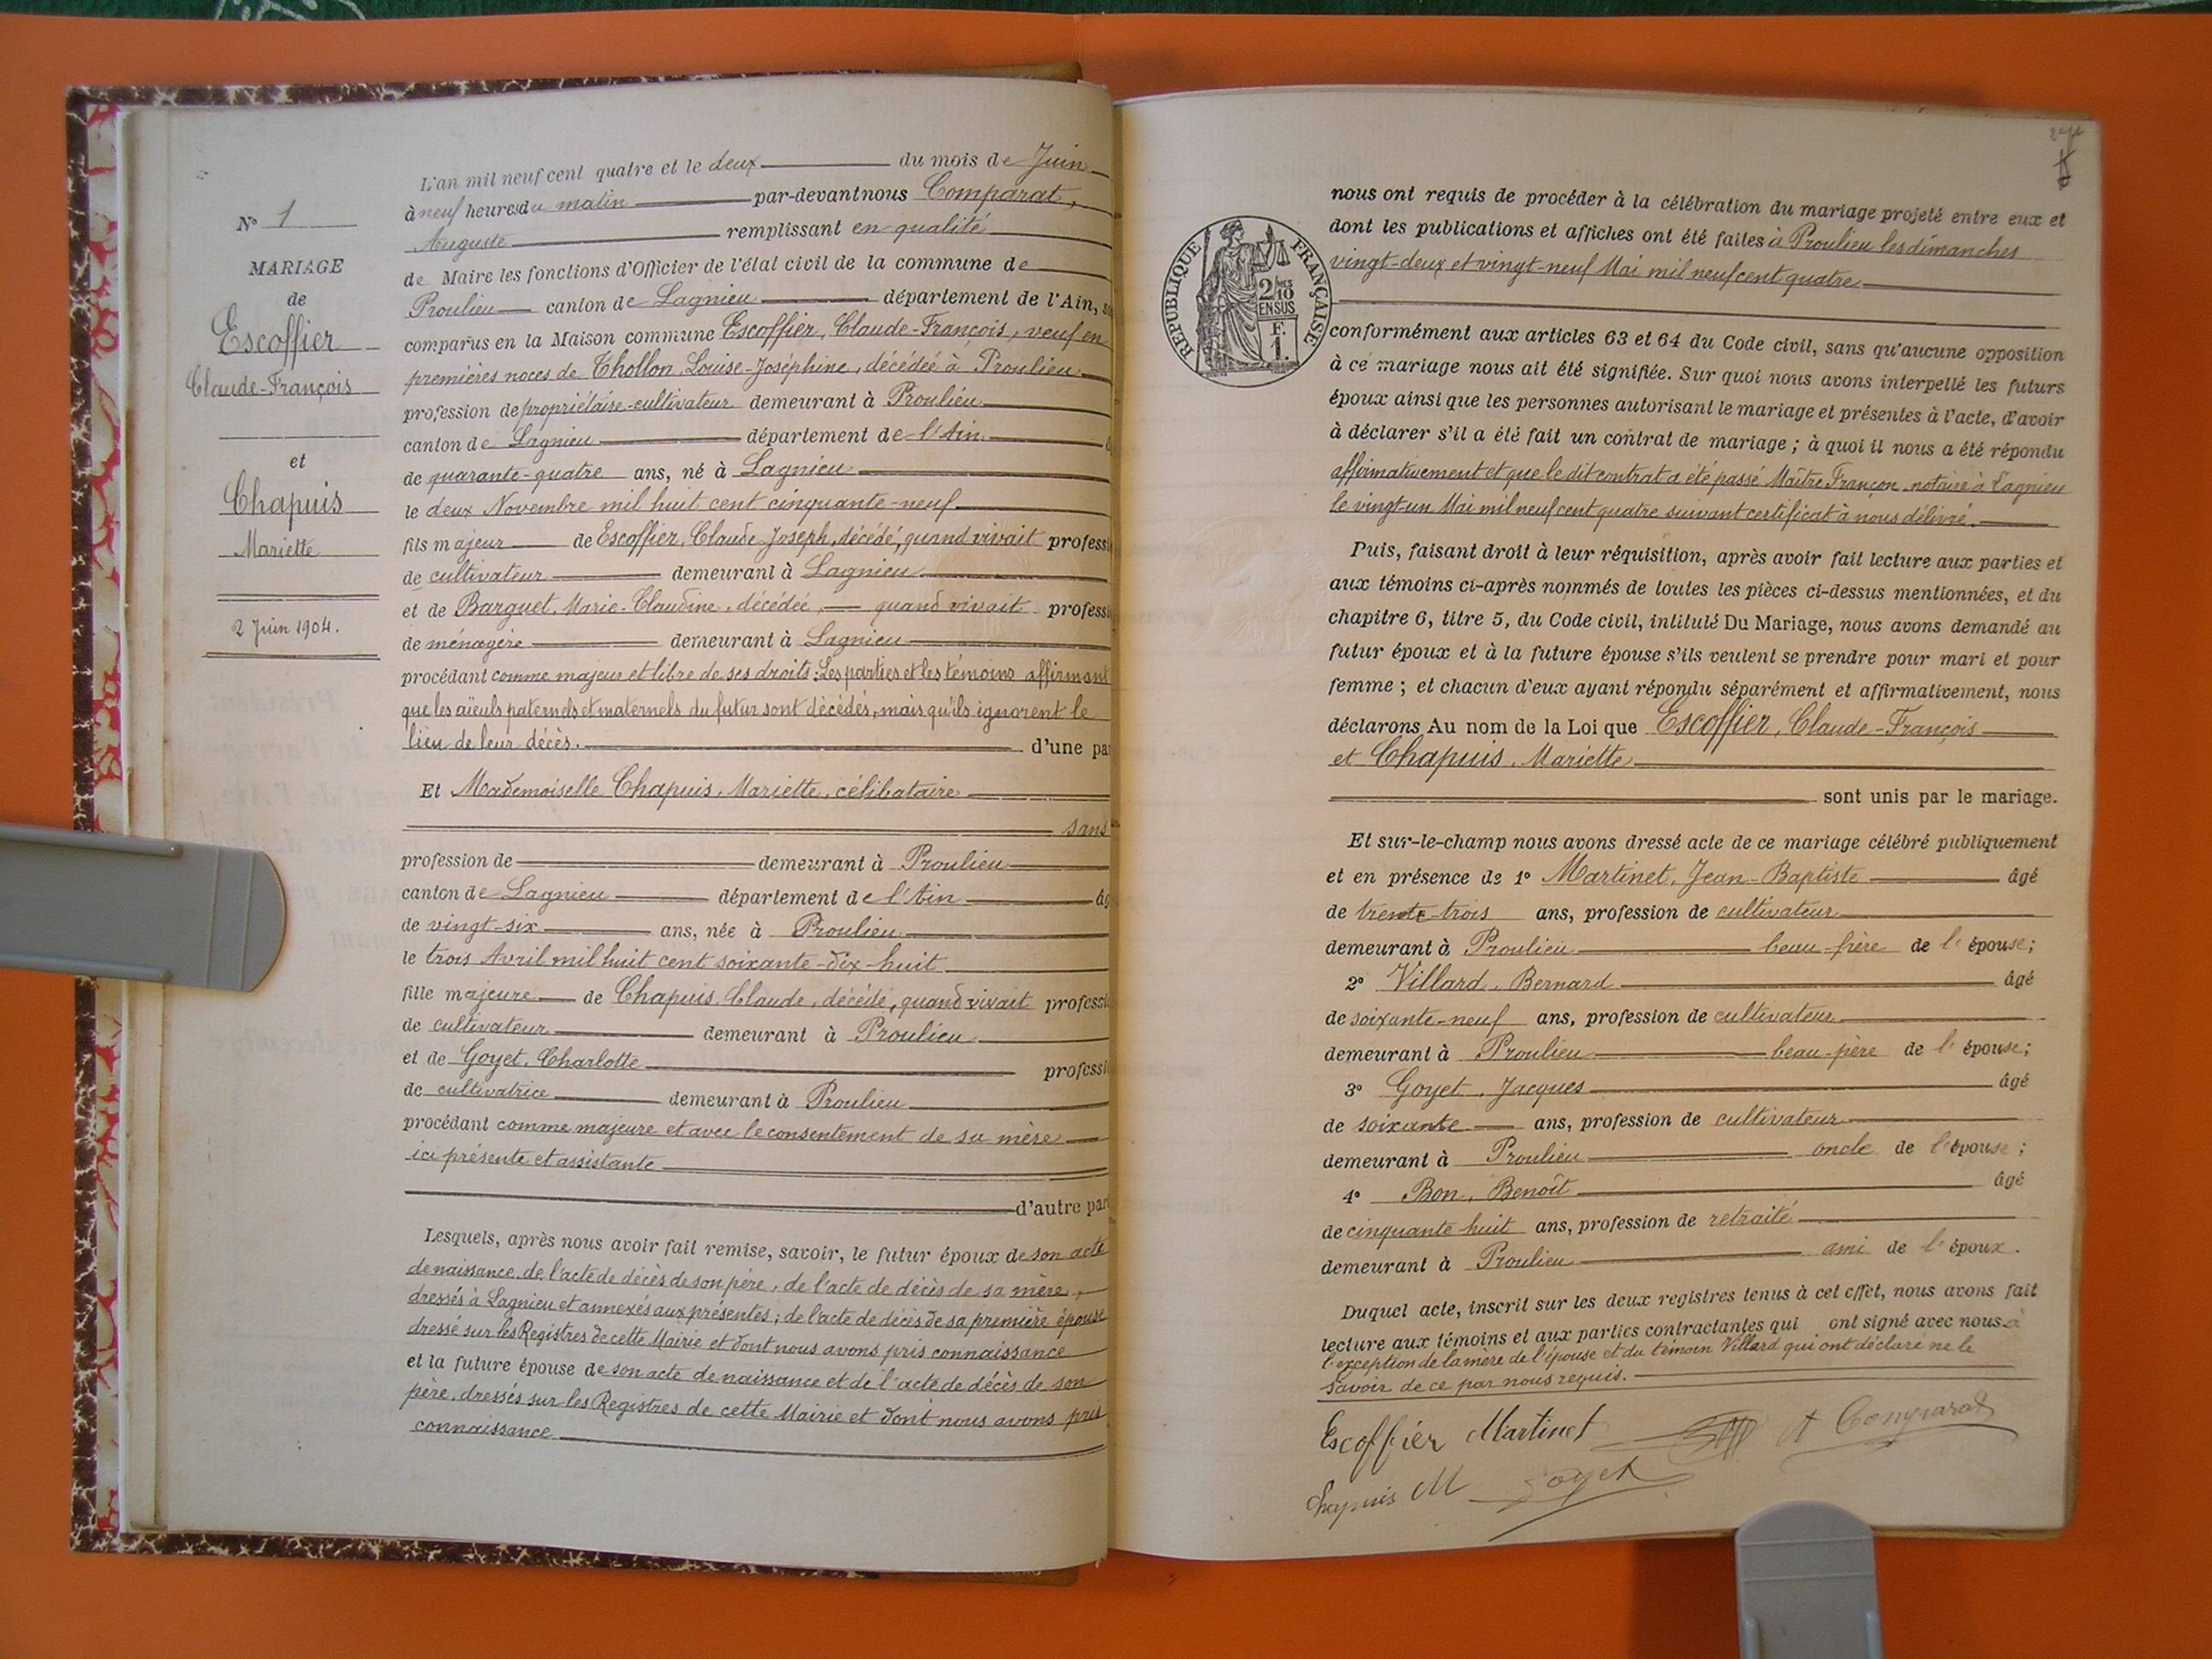 N° 1
MARIAGE
de
Escoffier
Claude-François
et
Chapuis
Mariette
2 Juin 1904.
L'an mil neuf cent quatre et le deux du mois de Juin
à neuf heures du matin par-devant nous Comparat,
Auguste remplissant en qualité
de Maire les fonctions d'Officier de l'état civil de la commune de
Proulieu canton de Lagnieu département de l'Ain,
comparus en la Maison commune Escoffier, Claude-François, veuf en
premières noces de Thollon, Louise-Joséphine, décédée à Proulieu
profession de propriétaire-cultivateur demeurant à Proulieu
canton de Lagnieu département de l'Ain
de quarante-quatre ans, né à Lagnieu
le deux Novembre mil huit cent cinquante-neuf
fils majeur de Escoffier, Claude Joseph, décédé, quand vivait professi
de cultivateur demeurant à Lagnieu
et de Barguet, Marie-Claudine, décédée, quand vivait professi
de ménagère demeurant à Lagnieu
procédant comme majeur et libre de ses droits : Les parties et les témoins affirmant
que les aïeuls paternels et maternels du futur sont décédés, mais qu'ils ignorent le
lieu de leur décès. d'une pa
Et Mademoiselle Chapuis, Mariette, célibataire
sans
profession de demeurant à Proulieu
canton de Lagnieu département de l'Ain âg
de vingt-six ans, née à Proulieu
le trois Avril mil huit cent soixante-dix-huit
fille majeure de Chapuis, Claude, décédé, quand vivait professi
de cultivateur demeurant à Proulieu
et de Goyet, Charlotte professi
de cultivatrice demeurant à Proulieu
procédant comme majeure et avec le consentement de sa mère
ici présente et assistante
d'autre par
Lesquels, après nous avoir fait remise, savoir, le futur époux de son acte
de naissance, de l'acte de décès de son père, de l'acte de décès de sa mère,
dressés à Lagnieu et annexés aux présentes ; de l'acte de décès de sa première épouse
dressé sur les Registres de cette Mairie et dont nous avons pris connaissance
et la future épouse de son acte de naissance et de l'acte de décès de son
père, dressés sur les Registres de cette Mairie et dont nous avons pris
connaissance
RÉPUBLIQUE FRANÇAISE
2/10
EN SUS
F.
1.
nous ont requis de procéder à la célébration du mariage projeté entre eux et
dont les publications et affiches ont été faites à Proulieu les dimanches
vingt-deux et vingt-neuf Mai mil neuf cent quatre
conformément aux articles 63 et 64 du Code civil, sans qu'aucune opposition
à ce mariage nous ait été signifiée. Sur quoi nous avons interpellé les futurs
époux ainsi que les personnes autorisant le mariage et présentes à l'acte, d'avoir
à déclarer s'il a été fait un contrat de mariage ; à quoi il nous a été répondu
affirmativement et que le dit contrat a été passé Maître Françon, notaire à Lagnieu
le vingt-un Mai mil neuf cent quatre suivant certificat à nous délivré.
Puis, faisant droit à leur réquisition, après avoir fait lecture aux parties et
aux témoins ci-après nommés de toutes les pièces ci-dessus mentionnées, et du
chapitre 6, titre 5, du Code civil, intitulé Du Mariage, nous avons demandé au
futur époux et à la future épouse s'ils veulent se prendre pour mari et pour
femme ; et chacun d'eux ayant répondu séparément et affirmativement, nous
déclarons Au nom de la Loi que Escoffier, Claude-François
et Chapuis, Mariette
sont unis par le mariage.
Et sur-le-champ nous avons dressé acte de ce mariage célébré publiquement
et en présence de 1° Martinet, Jean-Baptiste âgé
de trente-trois ans, profession de cultivateur
demeurant à Proulieu beau-frère de l'épouse ;
2° Villard, Bernard âgé
de soixante-neuf ans, profession de cultivateur
demeurant à Proulieu beau-père de l'épouse ;
3° Goyet, Jacques âgé
de soixante ans, profession de cultivateur
demeurant à Proulieu oncle de l'épouse ;
4° Bon, Benoît âgé
de cinquante huit ans, profession de retraité
demeurant à Proulieu ami de l'époux.
Duquel acte, inscrit sur les deux registres tenus à cet effet, nous avons fait
lecture aux témoins et aux parties contractantes qui ont signé avec nous à
l'exception de la mère de l'épouse et du témoin Villard qui ont déclaré ne le
savoir de ce par nous requis.
Escoffier Martinet A Comparat
Chapuis M Goyet